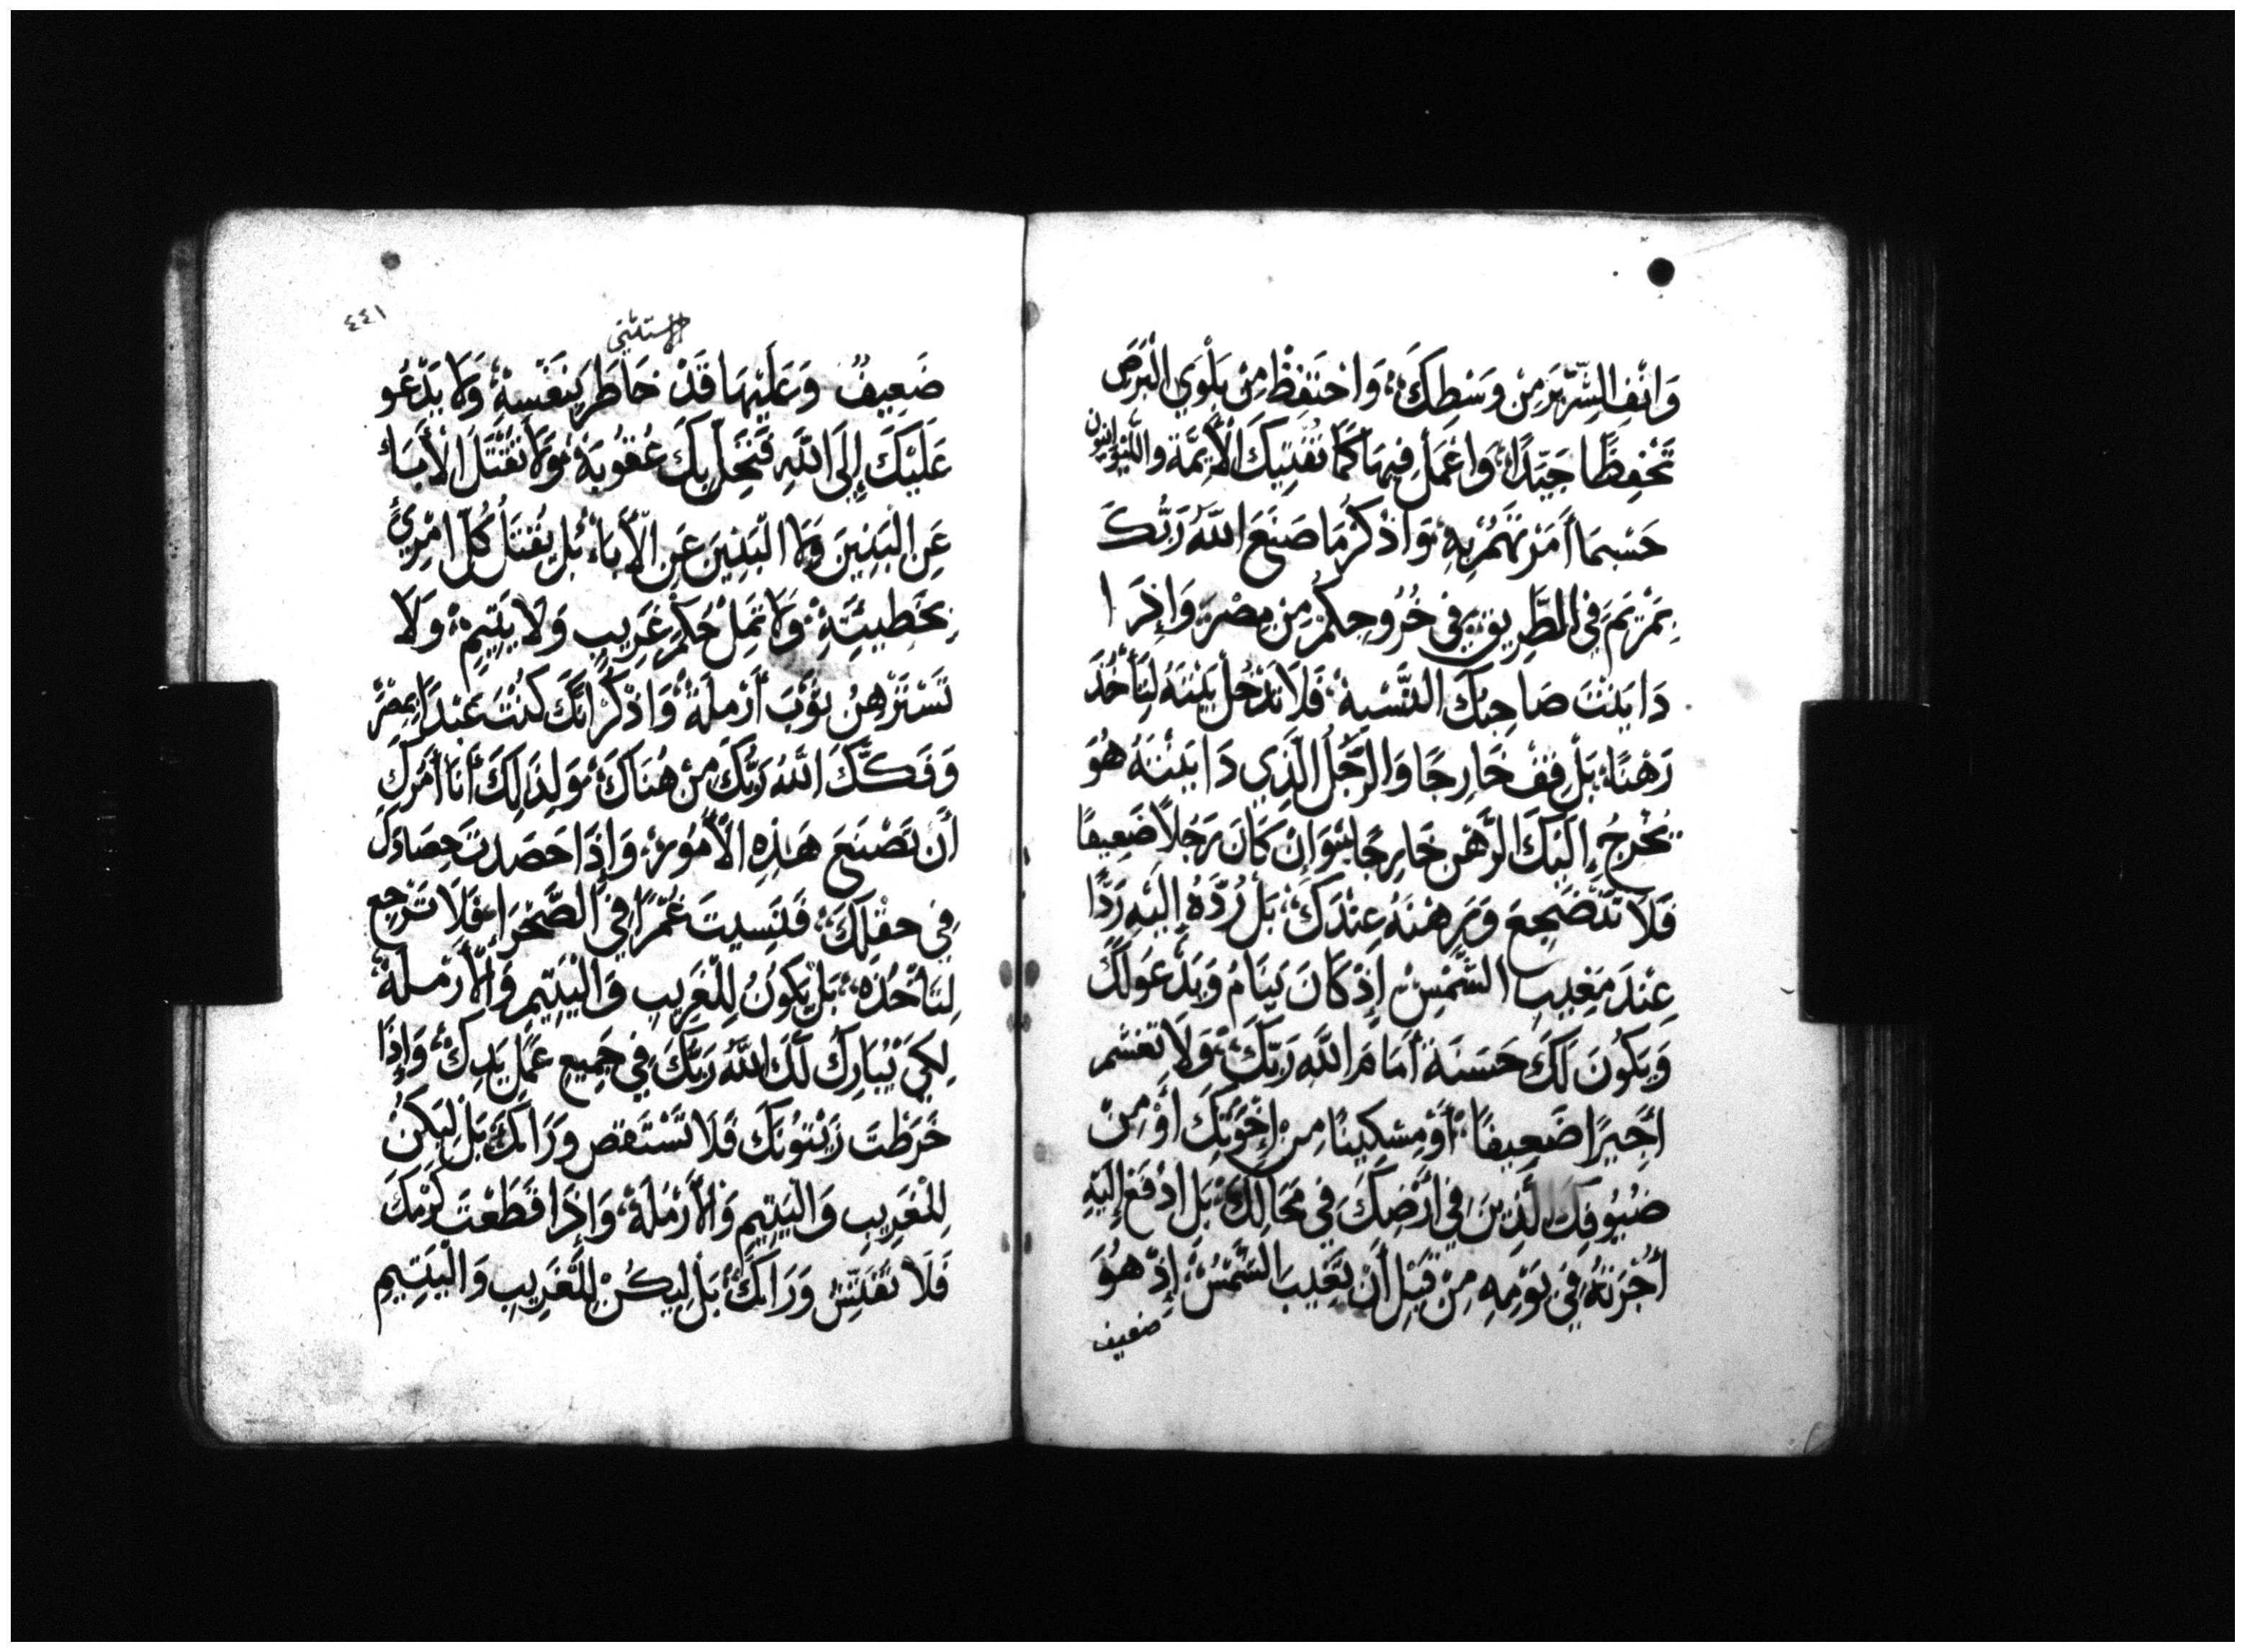 وَانْفِ الشِّرِّيرَ مِنْ وَسْطِكَ، وَاحْتَفِظْ مِنْ بَلْوَي الْبَرَصِ
تَحَفُّظًا جَيِّدًا، وَاعْمَلْ فِيهَا كَمَا تُفْتِيكَ الْأَئِمَّة واللَّيْوَانِيُون
حَسْبمَا أَمَرْتهُمْ بِهِ، وَاذْكُرْ مَا صَنَعَ اللَّهُ رَبُّكَ
بِمَرْيَمَ فِي الطَّرِيقِ فِي خُرُوجِكُمْ مِنْ مِصْرَ، وَإِذَا
دَايَنْتَ صَاحِبُكَ النَّسْيةَ، فَلَا تَدْخُلْ بَيْتَهُ لِتَأْخُذَ
رَهْنًا، بَلْ قِفْ خَارِجًا وَالرَّجُلُ الَّذِي دَايَنْتَهُ هُوَ
يُخْرِجُ إِلَيْكَ الرَّهْن خَارِجًا، وَإِنْ كَانَ رَجُلًا ضَعِيفًا
فَلَا تَضَّجِعَ وَرِهْنَهُ عِنْدَكَ، بَلْ رُدَّهُ إِلَيْهِ رَدًّا
عِنْدَ مَغِيبِ الشَّمْسِ إِذْ كَانَ يَنَامُ وَيَدْعَو لَكَ
وَيَكُونَ لَكَ حَسَنَة أَمَامَ اللَّهِ رَبِّكَ، وَلَا تغشم
أَجِيرًا ضَعِيفًا، أَوْ مِسْكِينًا مِن إِخْوَتِكَ أَوْ مِنْ
ضُيُوفِكَ الَّذِينَ فِي أَرْضِكَ فِي مَحَالِّكَ، بَلِ ادْفَعْ إِلَيْهِ
أُجْرَتَهُ فِي يَوْمِهِ مِنْ قَبْلِ أَنْ تَغِيبَ الشَّمْسُ إِذْ هُوَ
ضعيف
٤٤١
ضَعِيفٌ وَعَلَيْهَا قَدْ خَاطَر بِنَفْسِهِ، وَلَا يَدْعُو
عَلَيْكَ إِلَى اللَّهِ فَتَحِلّ بِكَ عُقُوبَة، وَلَا تُقْتَل الْأَبَاء
عَنِ الْبَنِينَ وَلَا الْبَنِينَ عَنِ الْأَبَاء، بَلْ يُقْتَلُ كُلّ امْرِئ
بِخَطِيئَتِهِ، وَلَا تُمِلْ حُكْمَ غَرِيبٍ وَلَا يَتِيمٍ، وَلَا
تَسْتَرْهِنْ ثَوْبَ أَرْمِلَة، وَاذْكُرْ أَنَّكَ كُنْتَ عَبْدًا بِمِصْرَ
وَفَكَّكَ اللَّهُ رَبُّكَ مِنْ هُنَاكَ، وَلِذَلِكَ أَنَا آمُرُكَ
أَن تَصْنَعَ هَذِهِ الْأُمُورِ، وَإِذَا حَصَدتَ حِصَادَكَ
فِي حَقْلِكَ، فَنَسِيتَ غُمْرًا فِي الصَّحْرَاء، فَلَا تَرْجِع
لِتَأْخُذَه، بَلْ يَكُونُ لِلْغَرِيبِ وَالْيَتِيمِ وَالْأَرْمِلَة
لِكَيْ يُبَارِكَ لَكَ اللَّهُ رَبُّكَ فِي جَمِيعِ عَمَلِ يَدِكَ، وَإِذَا
خَرَطْتَ زَيْتُونَكَ فَلَا تَسْتَقص وَرَاكَ، بَلْ لِيَكُنْ
لِلْغَرِيبِ وَالْيَتِيمِ وَالْأَرْمَلَة، وَإِذَا قَطَعْتَ كَرْمَكَ
فَلَا تُفَتِّشْ وَرَاكَ، بَلْ لِيَكُنْ لِلْغَرِيبِ وَالْيَتِيمِ